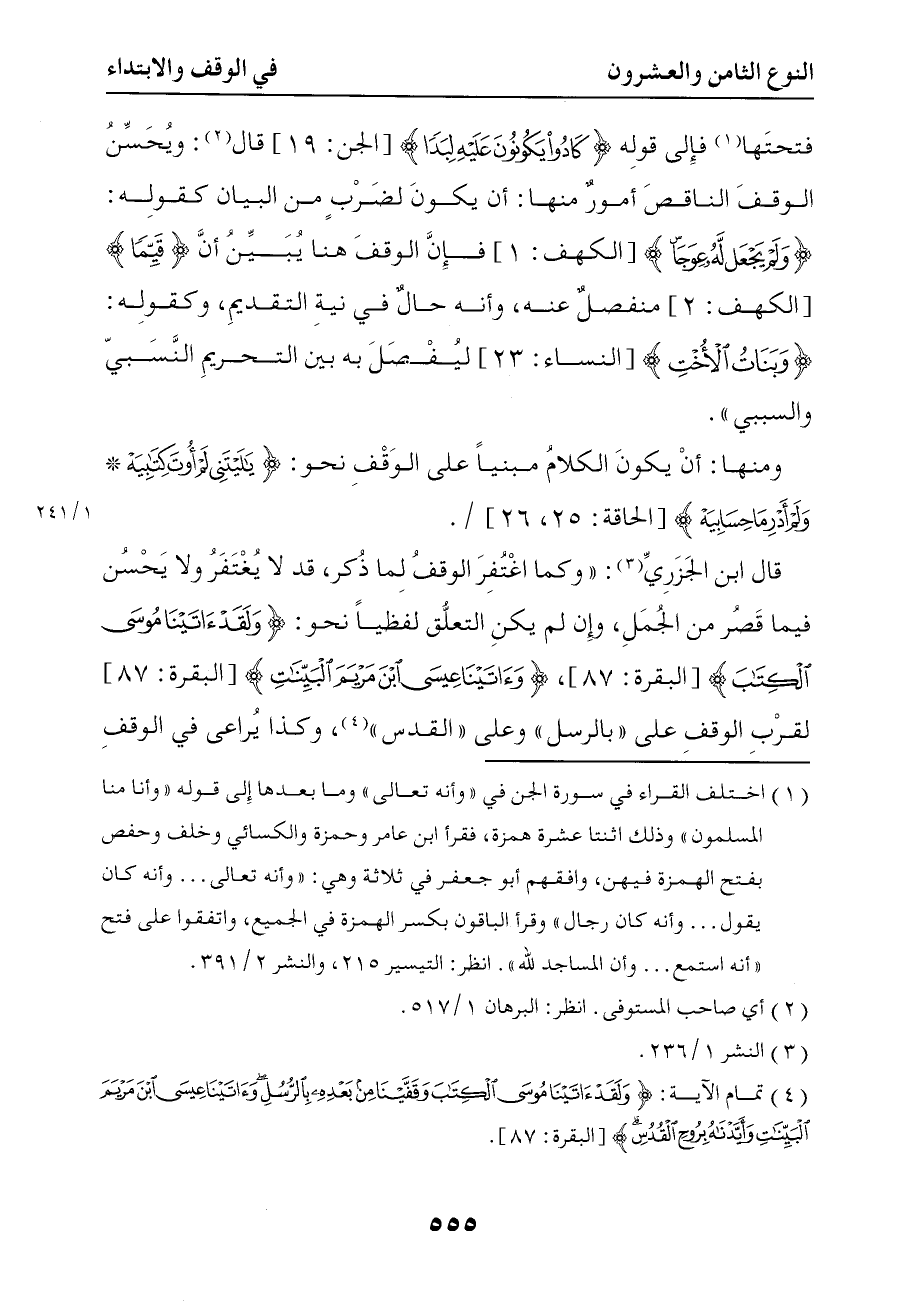 النوع الثامن والعشرون في الوقف والابتداء
فتحتَها(١) فإلى قوله ﴿ كَادُواْ يَكُونُونَ عَلَيْهِ لِبَدًا ﴾ [الجن: ١٩] قال(٢): ويُحَسِّنُ
الوقفَ الناقصَ أمورٌ منها: أن يكونَ لضَرْبٍ من البيان كقوله:
﴿ وَلَمْ يَجْعَل لَّهُۥ عِوَجَاۜ ﴾ [الكهف: ١] فإنَّ الوقفَ هنا يُبَيِّنُ أنَّ ﴿ قَيِّمًا ﴾
[الكهف: ٢] منفصلٌ عنه، وأنه حالٌ في نية التقديم، وكقوله:
﴿ وَبَنَاتُ ٱلْأُخْتِ ﴾ [النساء: ٢٣] ليُفْصَلَ به بين التحريمِ النَّسَبيّ
والسببي».
ومنها: أنْ يكونَ الكلامُ مبنياً على الوَقْفِ نحو: ﴿ يَٰلَيْتَنِى لَمْ أُوتَ كِتَٰبِيَهْ *
وَلَمْ أَدْرِ مَا حِسَابِيَهْ ﴾ [الحاقة: ٢٥، ٢٦] /. ٢٤١/١
قال ابن الجَزَريِّ(٣): «وكما اغْتُفِرَ الوقفُ لما ذُكر، قد لا يُغْتَفَرُ ولا يَحْسُن
فيما قَصُر من الجُمَلِ، وإن لم يكنِ التعلُّق لفظياً نحو: ﴿ وَلَقَدْ ءَاتَيْنَا مُوسَى
ٱلْكِتَٰبَ ﴾ [البقرة: ٨٧]، ﴿ وَءَاتَيْنَا عِيسَى ٱبْنَ مَرْيَمَ ٱلْبَيِّنَٰتِ ﴾ [البقرة: ٨٧]
لقرْبِ الوقفِ على «بالرسل» وعلى «القدس»(٤)، وكذا يُراعى في الوقفِ
(١) اختلف القراء في سورة الجن في «وأنه تعالى» وما بعدها إلى قوله «وأنا منا
المسلمون» وذلك اثنتا عشرة همزة، فقرأ ابن عامر وحمزة والكسائي وخلف وحفص
بفتح الهمزة فيهن، وافقهم أبو جعفر في ثلاثة وهي: «وأنه تعالى... وأنه كان
يقول... وأنه كان رجال» وقرأ الباقون بكسر الهمزة في الجميع، واتفقوا على فتح
«أنه استمع... وأن المساجد لله». انظر: التيسير ٢١٥، والنشر ٣٩١/٢.
(٢) أي صاحب المستوفى. انظر: البرهان ٥١٧/١.
(٣) النشر ٢٣٦/١.
(٤) تمام الآية: ﴿ وَلَقَدْ ءَاتَيْنَا مُوسَى ٱلْكِتَٰبَ وَقَفَّيْنَا مِنۢ بَعْدِهِۦ بِٱلرُّسُلِۖ وَءَاتَيْنَا عِيسَى ٱبْنَ مَرْيَمَ
ٱلْبَيِّنَٰتِ وَأَيَّدْنَٰهُ بِرُوحِ ٱلْقُدُسِۗ ﴾ [البقرة: ٨٧].
٥٥٥